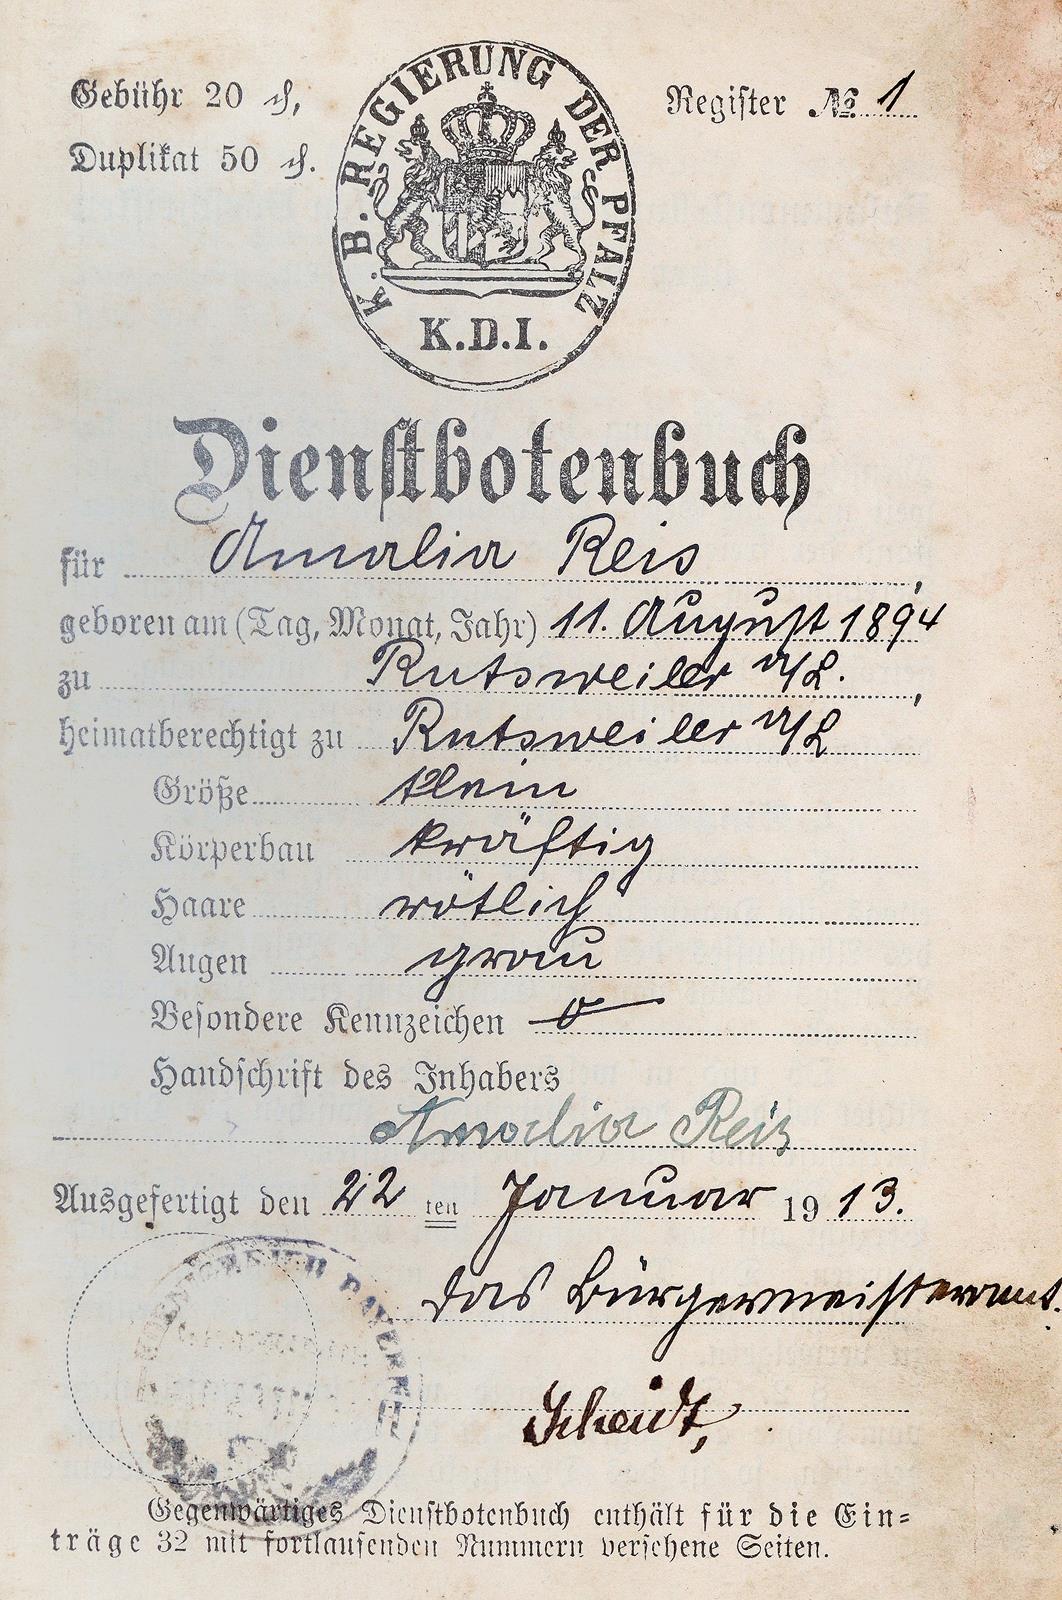 Gebühr 20 ₰,
Duplikat 50 ₰.
K. B. REGIERUNG DER PFALZ
K.D.I.
Register № 1
Dienstbotenbuch
für Amalia Reis,
geboren am (Tag, Monat, Jahr) 11. August 1894
zu Rutsweiler a/L.,
heimatberechtigt zu Rutsweiler a/L
Größe klein
Körperbau kräftig
Haare rötlich
Augen grau
Besondere Kennzeichen 0
Handschrift des Inhabers
Amalia Reis
Ausgefertigt den 22 ten Januar 1913.
Das Bürgermeisteramt.
Scheidt,
Gegenwärtiges Dienstbotenbuch enthält für die Ein-
träge 32 mit fortlaufenden Nummern versehene Seiten.